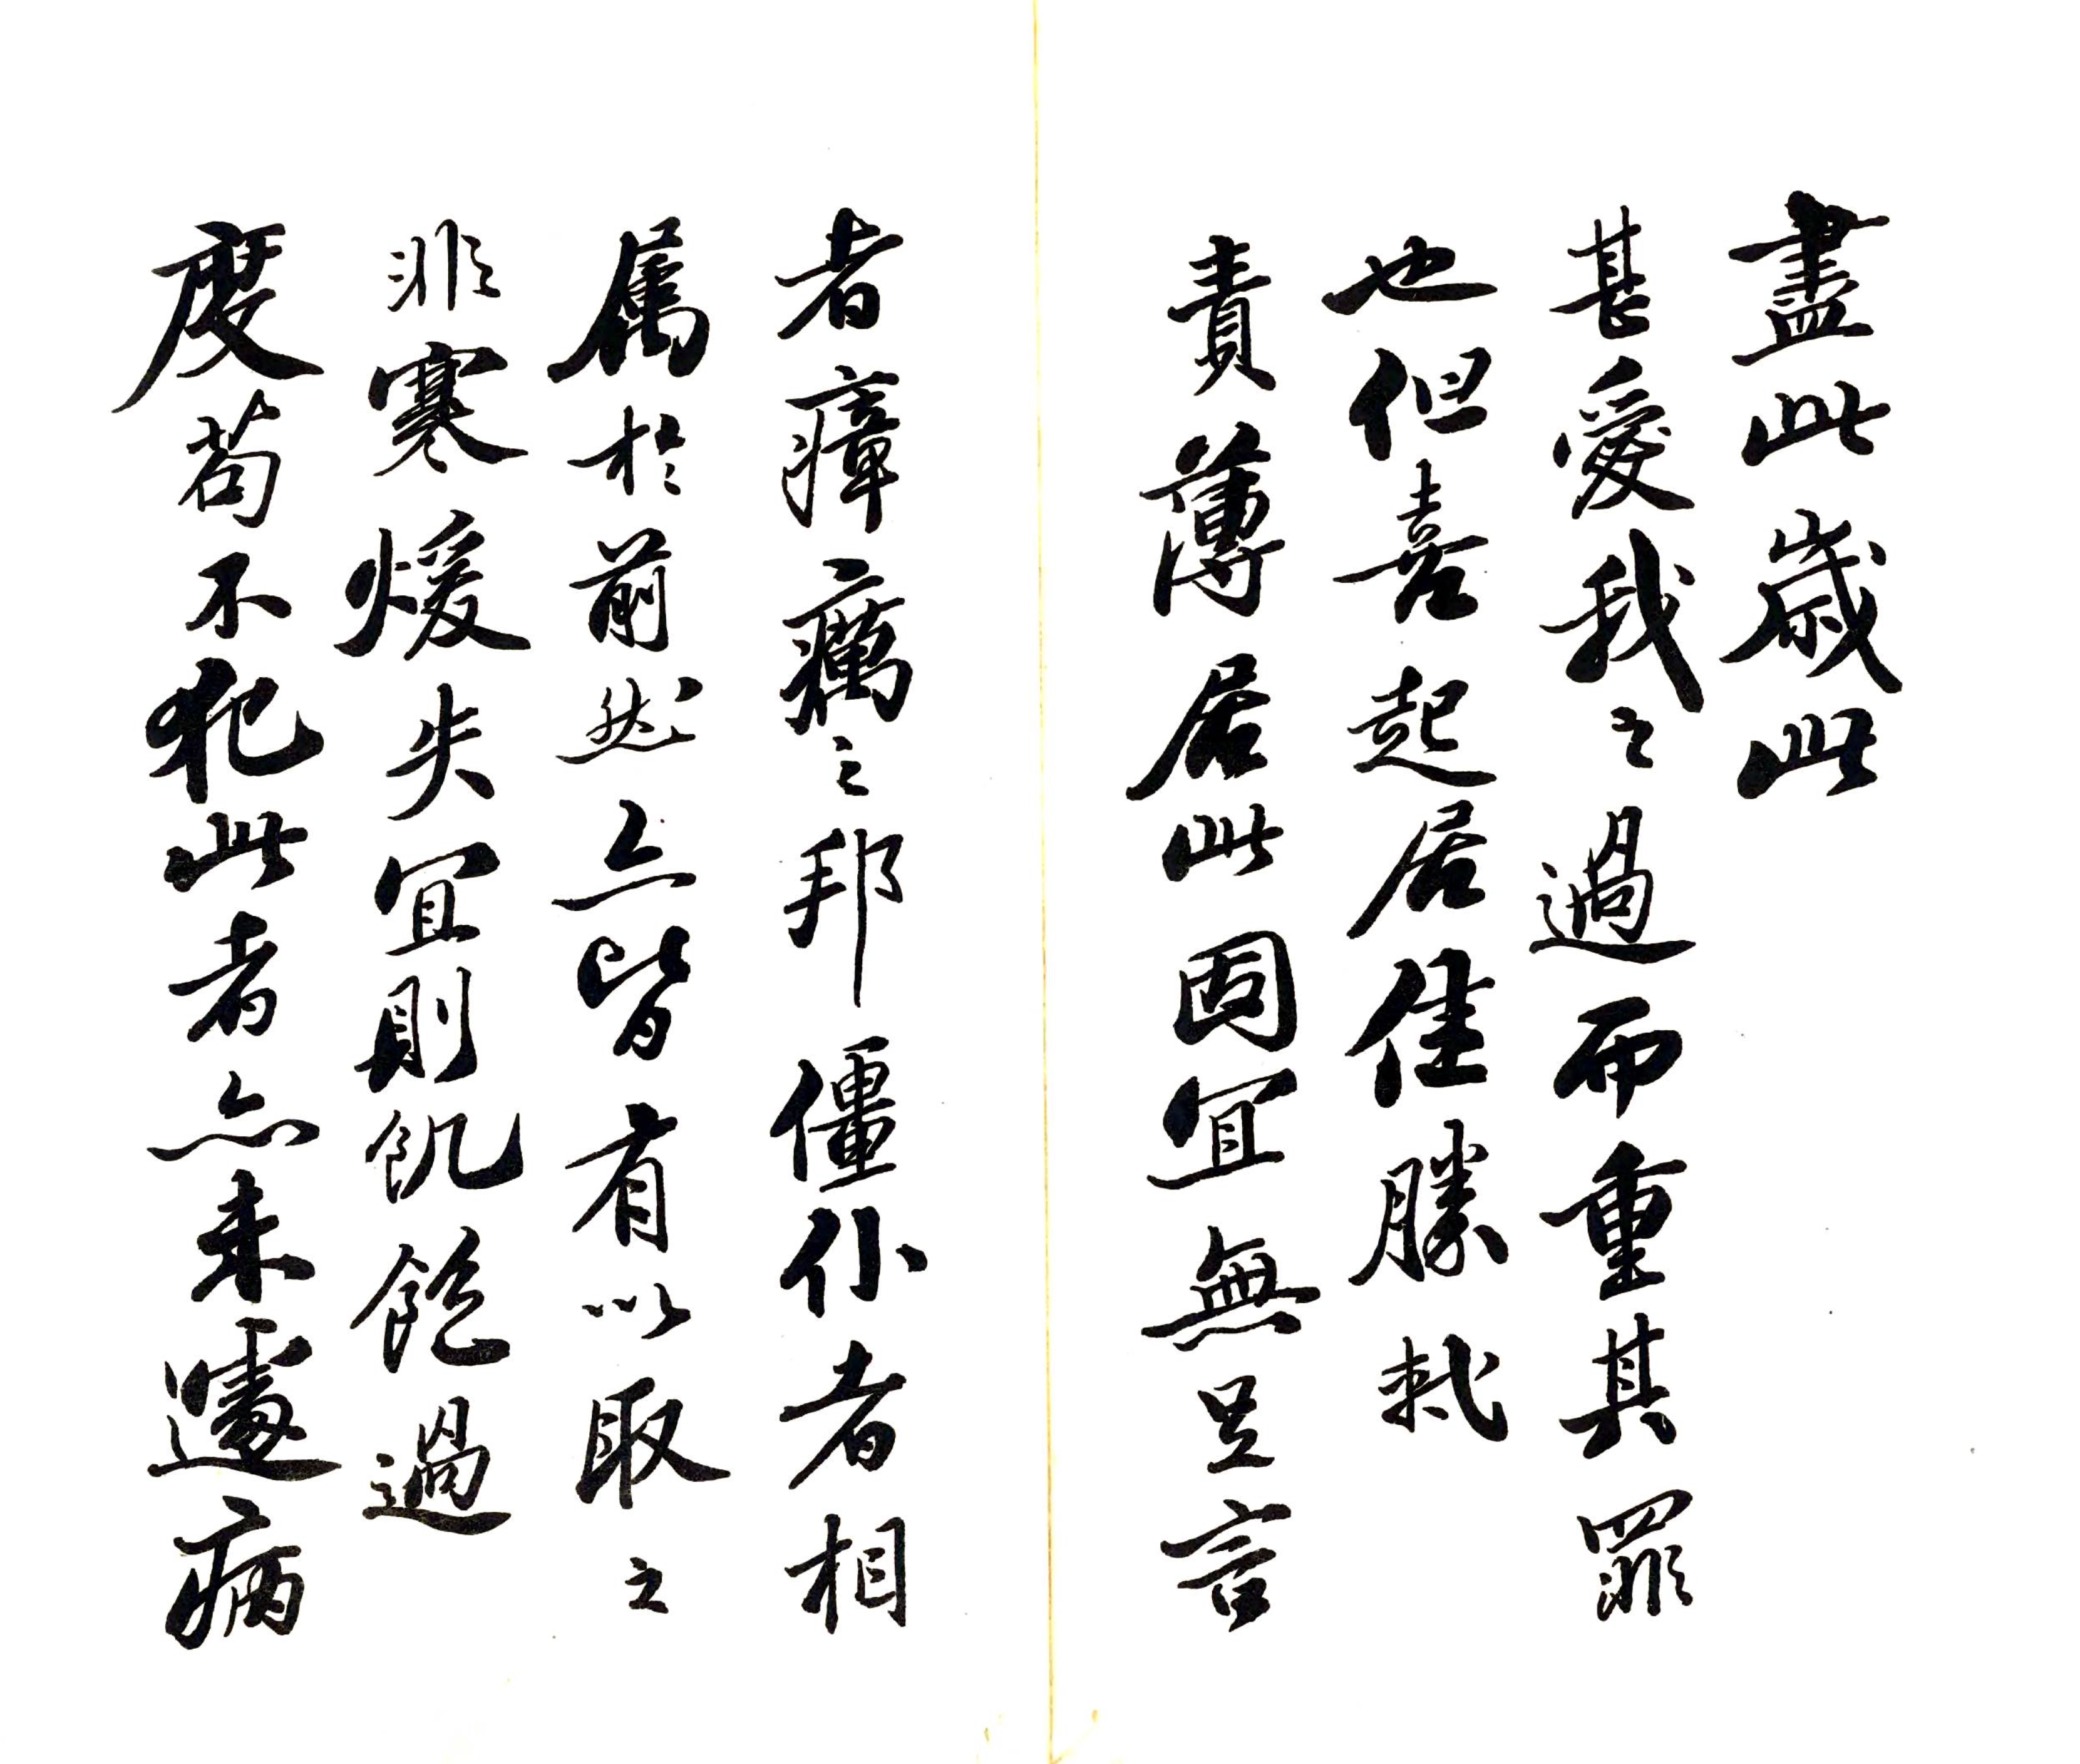 盡此歲此
甚愛我之過而重其罪
也但喜起居佳勝軾
責薄居此固宜無足言
者瘴癘之邦僵仆者相
属於前然亦皆有以取之
非寒煖失宜則飢飽過
度苟不犯此者亦未遽病